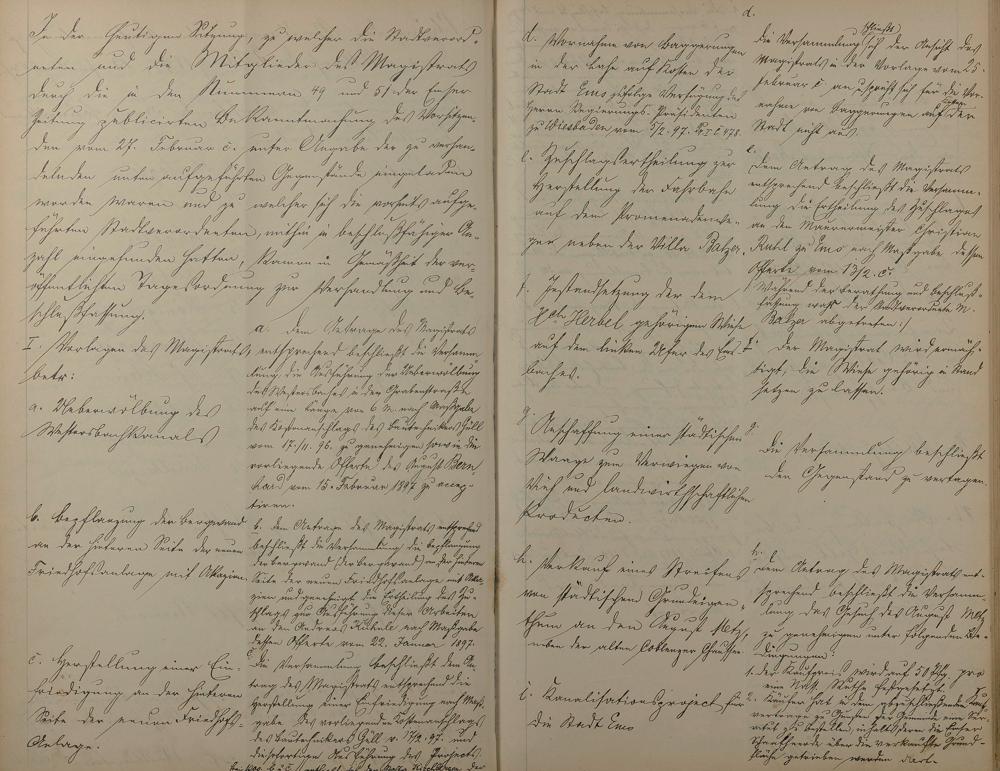 In der heutigen Sitzung, zu welcher die Stadtverord-
neten und die Mitglieder des Magistrats
durch die in den Nummern 49 und 51 der Emser
Zeitung publicirten Bekanntmachung des Vorsitzen-
den vom 27. Februar c. unter Angabe der zu verhan-
delnden unten aufgeführten Gegenstände eingeladen
worden waren und zu welcher sich die vorseits aufge-
führten Stadtverordneten, mithin in beschlußfähiger An-
zahl eingefunden hatten, kamen in Gemäßheit der ver-
öffentlichten Tagesordnung zur Verhandlung und Be-
schlußfassung.
I. Vorlagen des Magistrats,
betr:
a. Ueberwölbung des
Westerbachkanals
a. dem Antrage des Magistrats
entsprechend beschließt die Versamm
lung die Ausführung der Ueberwölbung
des Westerbaches in der Grabenstraße
auf eine Länge von 6 M. nach Maßgabe
des Kostenanschlags des Bautechnikers Güll
vom 17/11. 96. zu genehmigen sowie die
vorliegende Offerte des August Bern
vom 15. Februar 1897 zu accep-
tiren.
b. Bepflanzung der Bergwand
an der hinteren Seite der neuen
Friedhofsanlage mit Akazien.
b. dem Antrage des Magistrats entsprechend
beschließt die Versammlung die Bepflanzung
der Bergwand an der hinteren
Seite der neuen Friedhofsanlage mit Aka-
zien und genehmigt die Ertheilung des Zu-
schlags zur Ausführung dieser Arbeiten
an den Andreas nach Maßgabe
dessen Offerte vom 22. Januar 1897.
c. Herstellung einer Ein-
friedigung an der hinteren
Seite der neuen Friedhofs-
Anlage.
c. Die Versammlung beschließt dem An-
trag des Magistrats entsprechend die
Herstellung einer Einfriedigung nach Maß-
gabe des vorliegenden Kostenanschlags
des Bautechnikers Güll v. 97. und
Ausführung des Projects
d. Vornahme von Baggerungen
in der Lahn auf Kosten der
Stadt Ems zufolge Verfügung des
Herrn Regierungs-Präsidenten
zu Wiesbaden vom 5/2. 97. Pr I C 478
d.
die Versammlung schließt sich der Ansicht des
Magistrats in der Vorlage vom 25.
Februar c. an u. spricht sich für die Vor-
nahme von Baggerungen auf Kosten der
Stadt nicht aus.
e. Zuschlagsertheilung zur
Herstellung der Fahrbahn
auf dem Promenadenwe-
ge neben der Villa Balzer.
e.
Dem Antrag des Magistrats
entsprechend beschließt die Versamm-
lung die Ertheilung des Zuschlages
an den Maurermeister Christian
zu Ems nach Maßgabe dessen
Offerte vom 13/2. c.
Während der Berathung und Beschluß-
fassung war der Stadtverordnete M.
Balzer abgetreten:/
f. Instandsetzung der dem
Herbel gehörigen Wiese
auf dem linken Ufer des Ems-
baches.
f. Der Magistrat wird ermäch-
tigt, die Wiese gehörig in Stand
setzen zu lassen.
g. Anschaffung einer städtischen
Waage zum Verwiegen von
Vieh und landwirthschaftlichen
Producten.
g.
Die Versammlung beschließt
den Gegenstand zu vertagen.
h. Verkauf eines Streifens
von städtischem Grundeigen-
thum an den August Metz,
neben der alten Coblenzer Chaussee.
h.
dem Antrag des Magistrats ent-
sprechend beschließt die Versamm-
lung das Gesuch des August Metz
zu genehmigen unter folgenden Be-
dingungen:
1. der Kaufpreis wird auf 50 Mk. pro
eine Nass. Ruthe festgesetzt.
2. Käufer hat in dem abzuschließenden Kauf-
vertrage zu Gunsten der Gemeinde eine Ser-
vitut zu bestellen, inhalts deren die Emser
Schafheerde über die verkaufte Grund-
fläche getrieben werden darf.
i. Kanalisationsproject für
die Stadt Ems